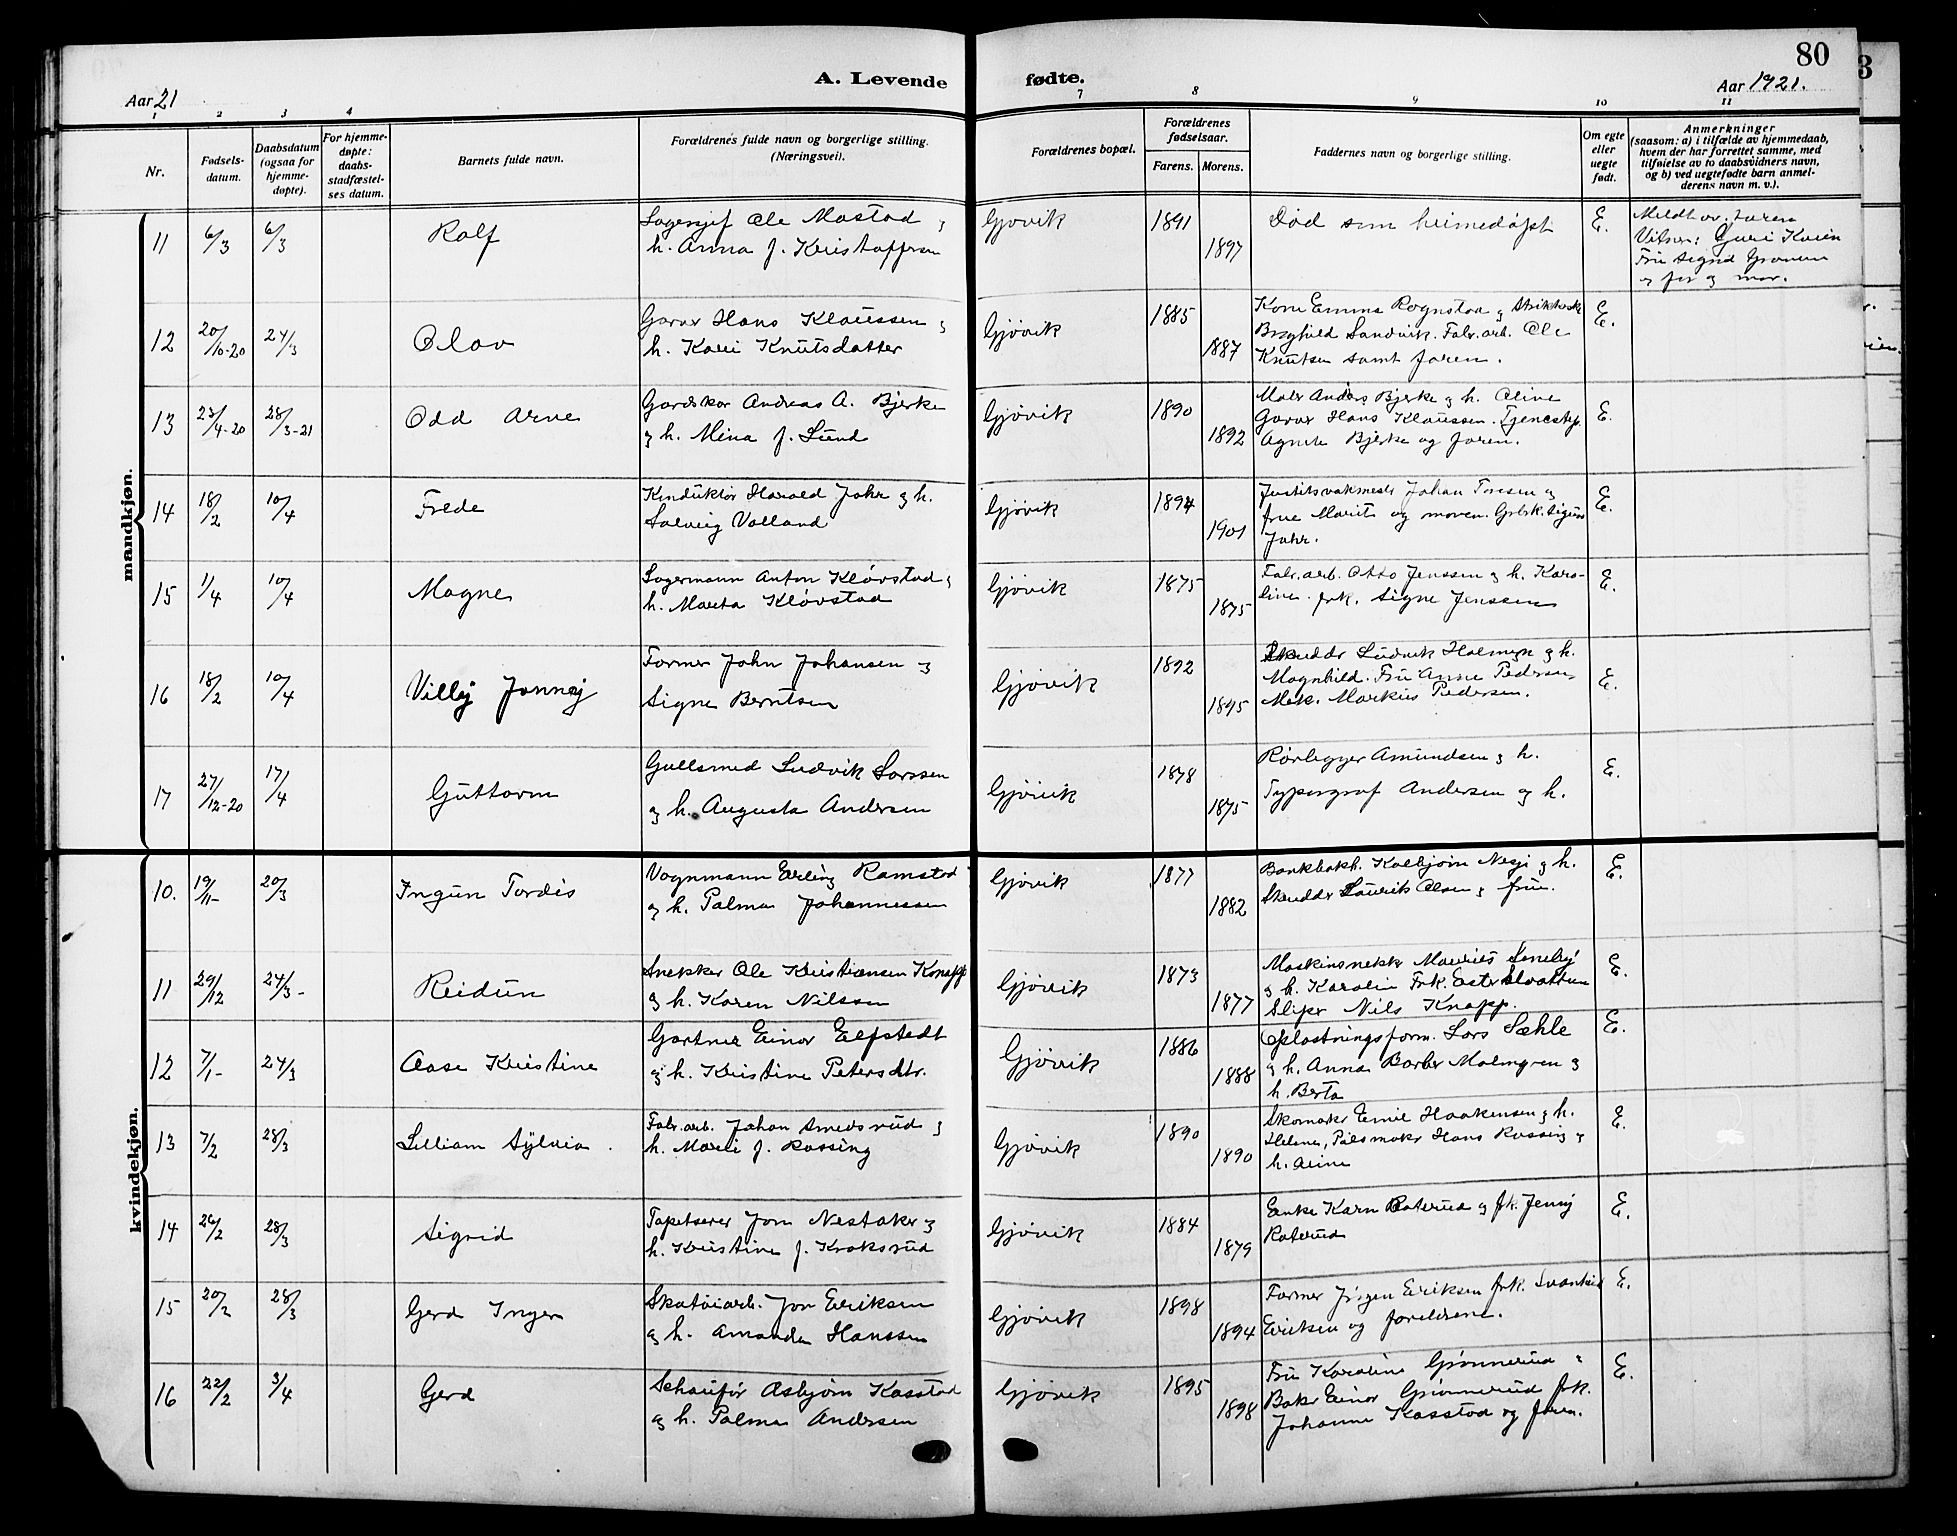 80
A. Levende fødte.
Aar 21
Aar 1921.
1 2 3 4 7 8 9 10 11
Nr.
Fødsels-
datum.
Daabsdatum
(ogsaa for
hjemme-
døpte).
For hjemme-
døpte:
daabs-
stadfæstel-
ses datum.
Barnets fulde navn.
Forældrenes fulde navn og borgerlige stilling.
(Næringsvei).
Forældrenes bopæl.
Forældrenes
fødselsaar.
Farens. Morens.
Faddernes navn og borgerlige stilling.
Om egte
eller
uegte
født.
Anmerkninger
(saasom: a) i tilfælde av hjemmedaab,
hvem der har forrettet samme, med
tilføielse av to daabsvidners navn,
og b) ved uegtefødte barn anmel-
derens navn m. v.).
mandkjøn.
11 6/3 6/3 Rolf
Ole Mostad
h. Anna f. Kristoffersen
Gjøvik 1891 1897
Død som heimedøpt
E.
Meldt av faren
Vitner: Guri
Fru Sigrid
og far og mor.
12 20/10-20 24/3 Olav
Garver Hans Klaussen og
h. Kari Knutsdatter
Gjøvik 1885 1887
Kone Emma Rognstad og
Borghild Sandvik. Fabr.arb. Ole
Knutsen samt faren.
E.
13 23/4-20 28/3-21 Odd Arne
Andreas A. Bjerke
og h. Mina f. Lund
Gjøvik 1890 1892
Maler Anders Bjerke og h. Oline
Garver Hans Klaussen. Tjenestep.
Agnete Bjerke og faren.
E.
14 18/2 10/4 Frede
Konduktør Harald Johr og h.
Solveig Volland
Gjøvik 1894 1901
Johan Toresen og
frue Marit og moren. Sigurd
Johr.
E.
15 1/4 10/4 Magne
Lagermann Anton Kløvstad og
h. Marta Kløvstad
Gjøvik 1875 1875
Fabr.arb. Otto Jenssen og h. Karo-
line. frk. Signe Jenssen
E.
16 18/2 10/4 Villy Jonny
Former John Johansen og
Signe Berntsen
Gjøvik 1892 1895
Skrædder Ludvik Holmgr og h.
Magnhild. Fru Anne Pedersen
Mek. Markus Pedersen.
E.
17 27/12-20 17/4 Guttorm
Gullsmed Ludvik Larssen
og h. Augusta Andersen
Gjøvik 1878 1875
Rørlegger Amundsen og h.
Typograf Andersen og h.
E.
kvindekjøn.
10. 19/11- 20/3 Ingun Tordis
Vognmann Erling Ramstad
og h. Palma Johannessen
Gjøvik 1877 1882
Bankbokh. Kolbjørn og h.
Skrædder Laurik Olsen og frue.
E.
11 29/12 24/3- Reidun
Snekker Ole Kristiansen Knapp
og h. Karen Nilssen
Gjøvik 1873 1877
Maskinsnekker Maurits
og h. Karolin Frk. Ester
Sliper Nils Knapp.
E.
12 7/1- 24/3 Aase Kristine
Gartner Einar Elfstedt
og h. Kristine Petersdtr.
Gjøvik 1886 1888
Oplastningsform. Lars Sæhle
og h. Anna Barber Malmgren og
h. Berta
E.
13 7/2 28/3 Lilliam Sylvia.
Fabr.arb. Johan Smedsrud og
h. Marie f. Røssing
Gjøvik 1890 1890
Skomaker Emil Haakensen og h.
Helene, Pølsmaker Hans Røssing og
h. Aline
E.
14 26/2 28/3 Sigrid
Tapetserer Jon Nestaker og
h. Kristine f. Kroksrud
Gjøvik 1884 1879
Enke Karn Roterud og frk. Jenny
Roterud
E.
15 20/2 28/3 Gerd Inger
Skotøiarb. Jon Eriksen
og h. Amanda Hanssen
Gjøvik 1898 1894
Former Jørgen Eriksen frk. Svanhild
Eriksen og foreldrene.
E.
16 22/2 3/4 Gerd
Schaufør Asbjørn Kasstad
og h. Palma Andersen
Gjøvik 1895 1898
Fru Karoline Grønnerud og
Baker Einar Grønnerud frk.
Johanne Kasstad og faren.
E.